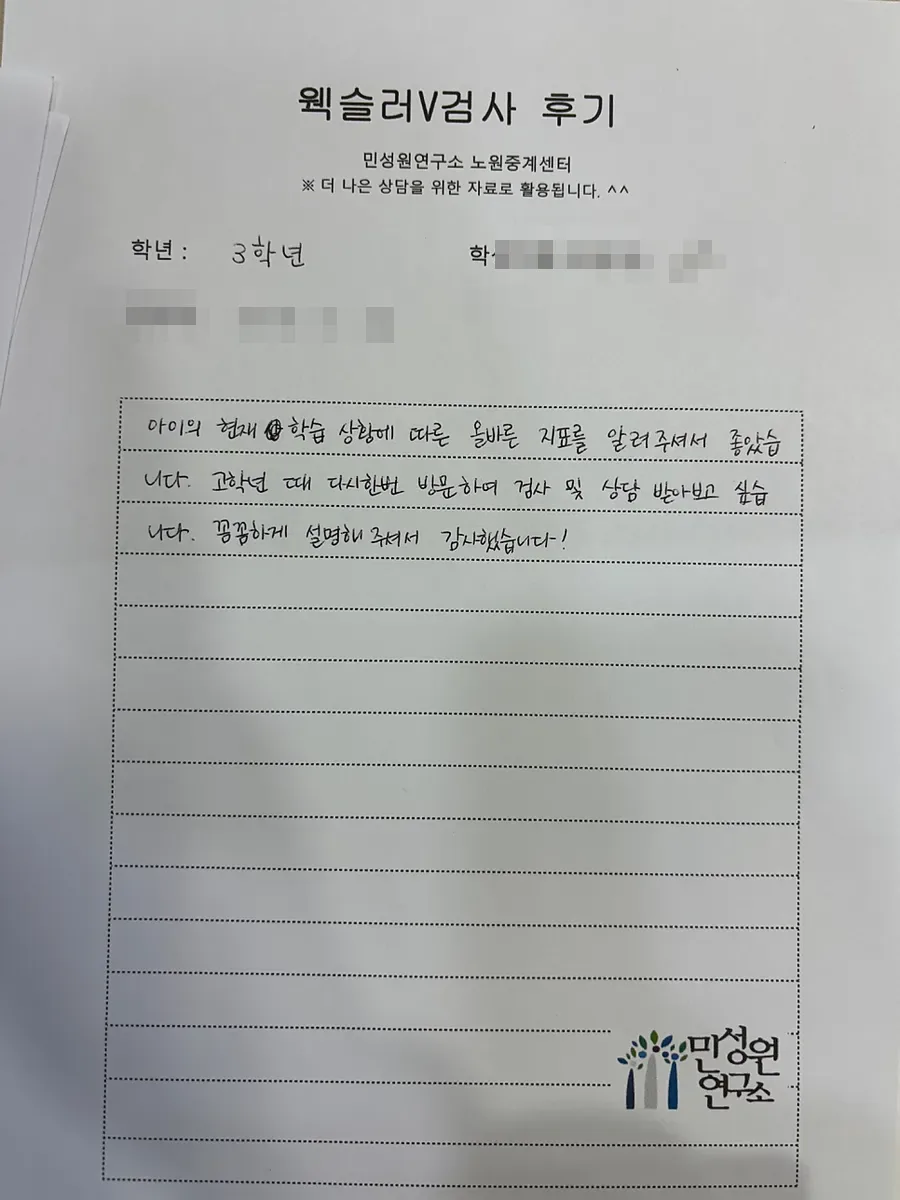 웩슬러V검사 후기
민성원연구소 노원중계센터
※ 더 나은 상담을 위한 자료로 활용됩니다. ^^
학년 : 3학년 학
아이의 현재 학습 상황에 따른 올바른 지표를 알려주셔서 좋았습
니다. 고학년 때 다시한번 방문하여 검사 및 상담 받아보고 싶습
니다. 꼼꼼하게 설명해주셔서 감사했습니다!
민성원
연구소